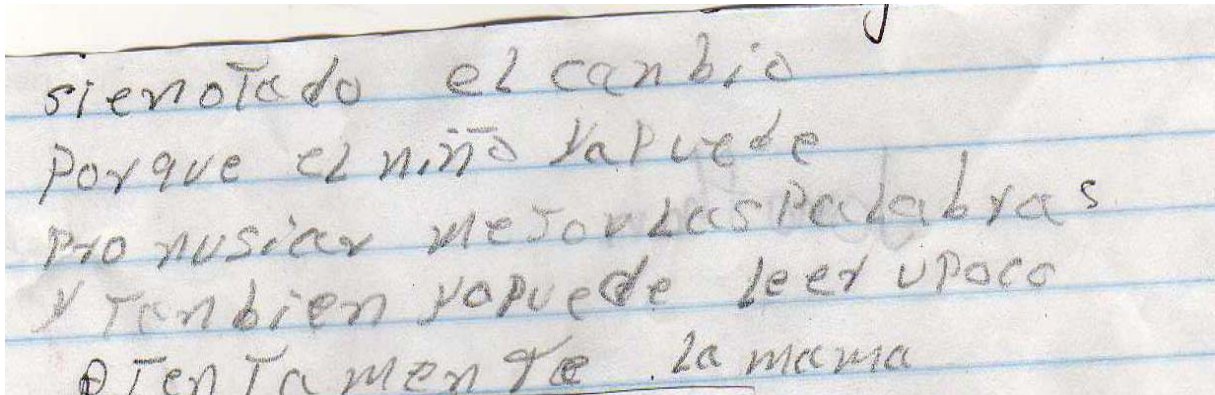 sienotado el canbio
Porque el niño yapuede
Pronusiar mejor Las Palabras
y Tanbien yapuede leer upoco
aTenTamenTe. La mama